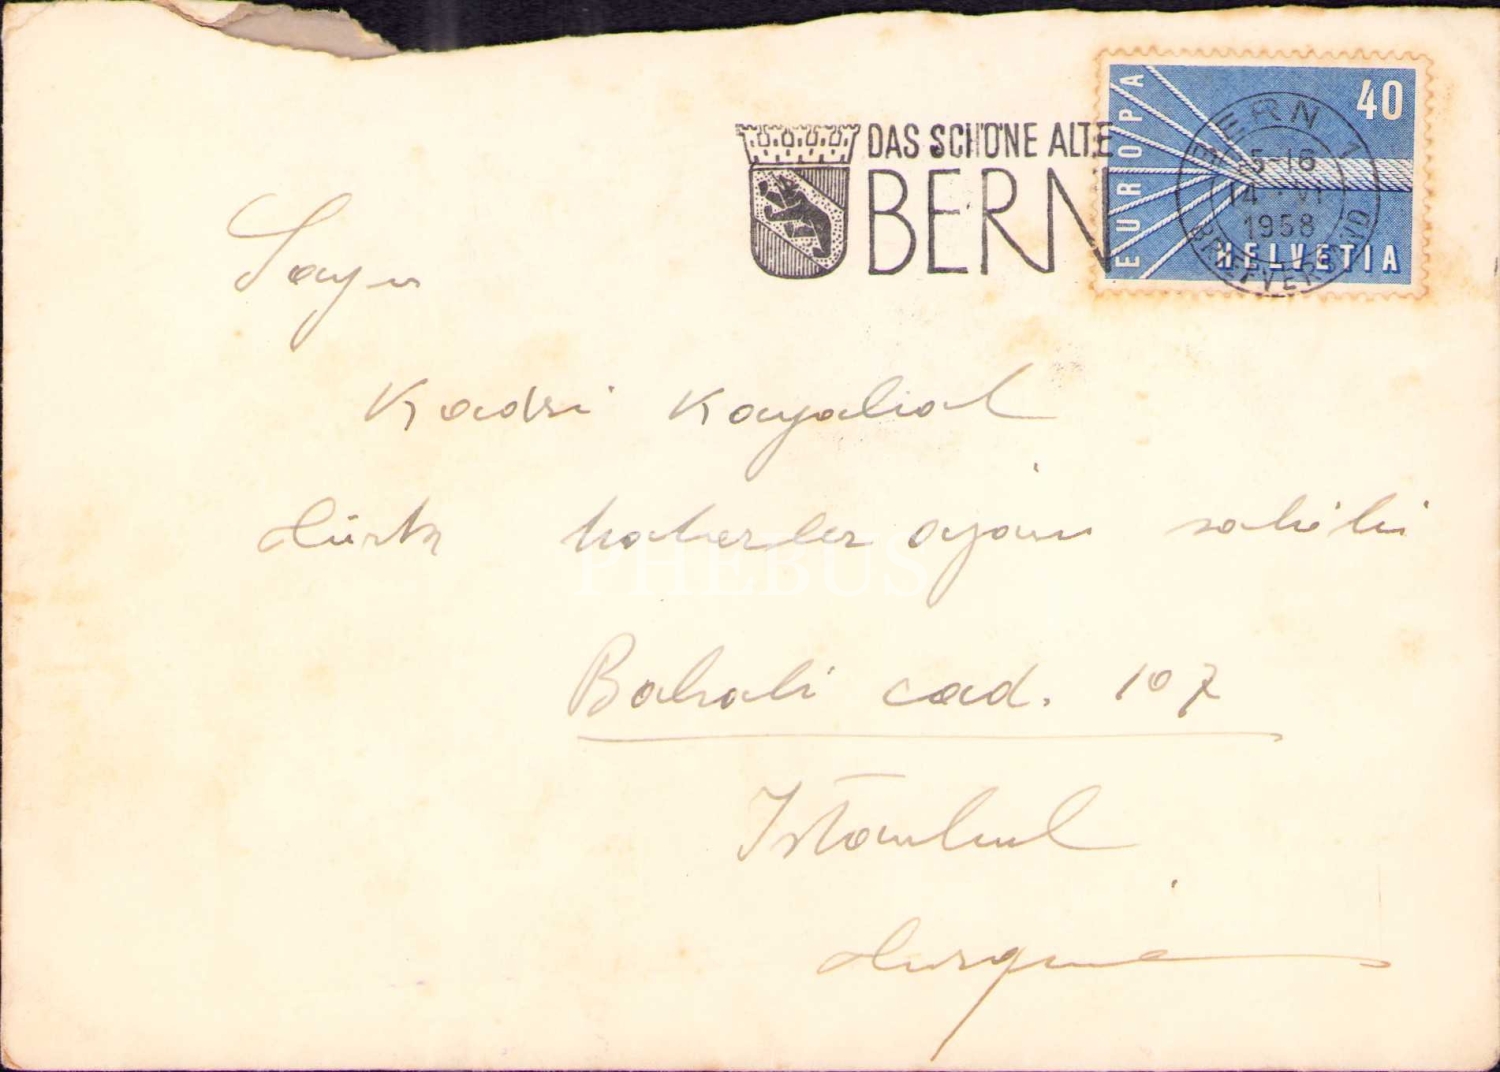 DAS SCHÖNE ALTE
BERN
EUROPA
40
HELVETIA
BERN 1
15-16
14.VI
1958
BRIEFVERSAND
Sayın
Kadri Kayabal
Türk haberler ajansı sahibi
Babıali cad. 107
Istanbul
Turquie
PHEBUS